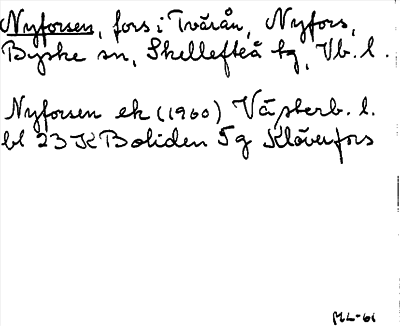 Nyforsen, fors i Tvärån, Nyfors,
Byske sn, Skellefteå tg, Vb. l.
Nyforsen ek (1960) Västerb. l.
bl 23 K Boliden 5g Klöverfors
ML-61